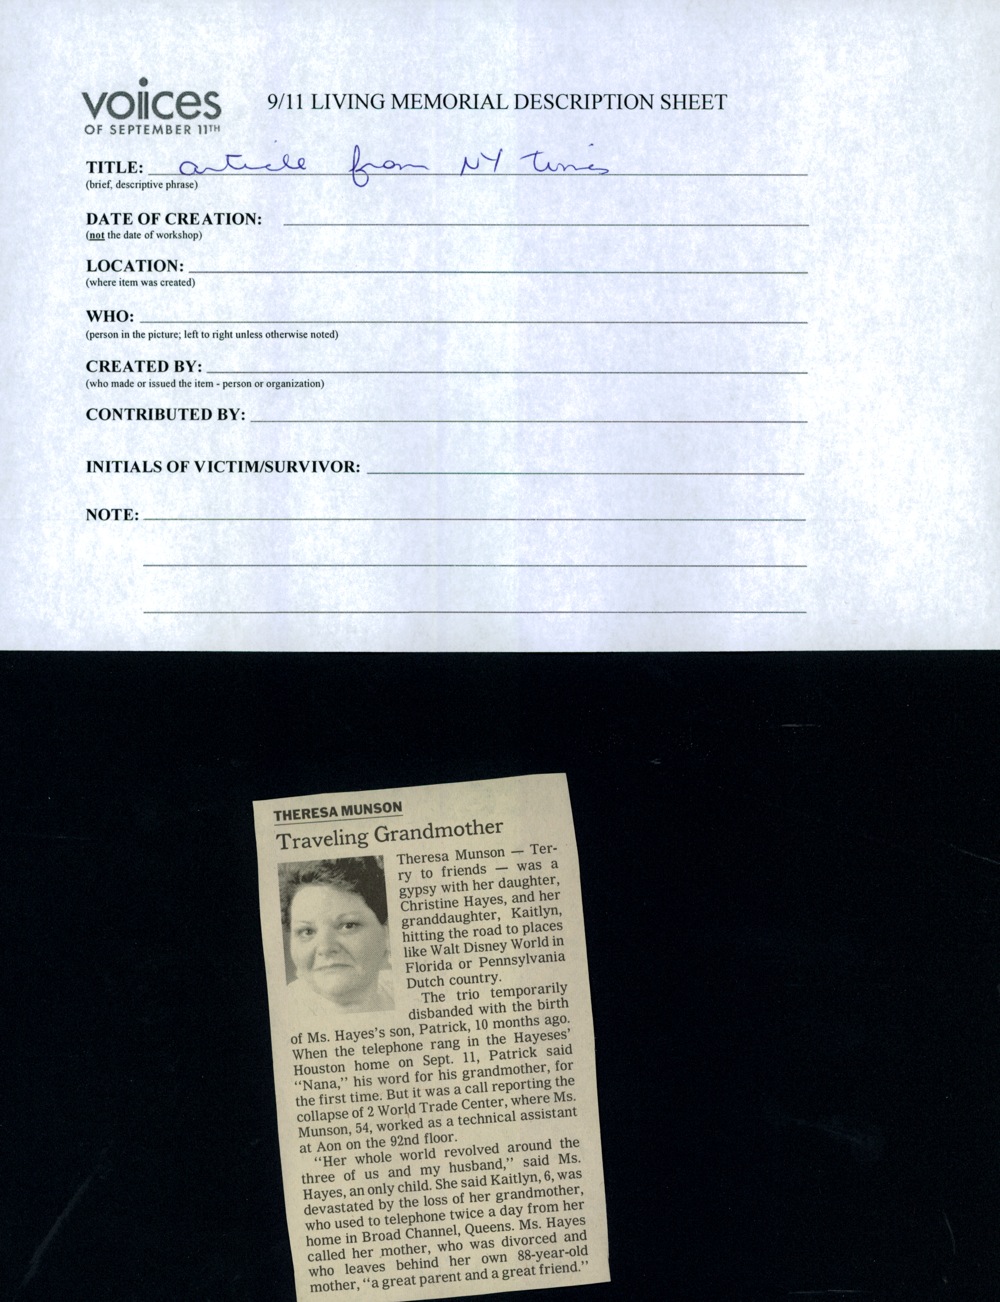 voiices
OF SEPTEMBER 11TH
9/11 LIVING MEMORIAL DESCRIPTION SHEET
TITLE: article from NY times
(brief, descriptive phrase)
DATE OF CREATION:
(not the date of workshop)
LOCATION:
(where item was created)
WHO:
(person in the picture; left to right unless otherwise noted)
CREATED BY:
(who made or issued the item - person or organization)
CONTRIBUTED BY:
INITIALS OF VICTIM/SURVIVOR:
NOTE:
THERESA MUNSON
Traveling Grandmother
Theresa Munson — Ter-
ry to friends — was a
gypsy with her daughter,
Christine Hayes, and her
granddaughter, Kaitlyn,
hitting the road to places
like Walt Disney World in
Florida or Pennsylvania
Dutch country.
The trio temporarily
disbanded with the birth
of Ms. Hayes's son, Patrick, 10 months ago.
When the telephone rang in the Hayeses'
Houston home on Sept. 11, Patrick said
"Nana," his word for his grandmother, for
the first time. But it was a call reporting the
collapse of 2 World Trade Center, where Ms.
Munson, 54, worked as a technical assistant
at Aon on the 92nd floor.
"Her whole world revolved around the
three of us and my husband," said Ms.
Hayes, an only child. She said Kaitlyn, 6, was
devastated by the loss of her grandmother,
who used to telephone twice a day from her
home in Broad Channel, Queens. Ms. Hayes
called her mother, who was divorced and
who leaves behind her own 88-year-old
mother, "a great parent and a great friend."